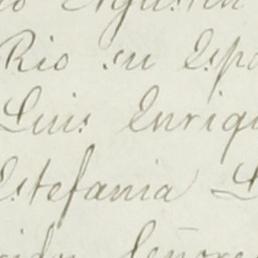 Agustin
Rio su Espo
Luis Enriq
Estefania L
Señore